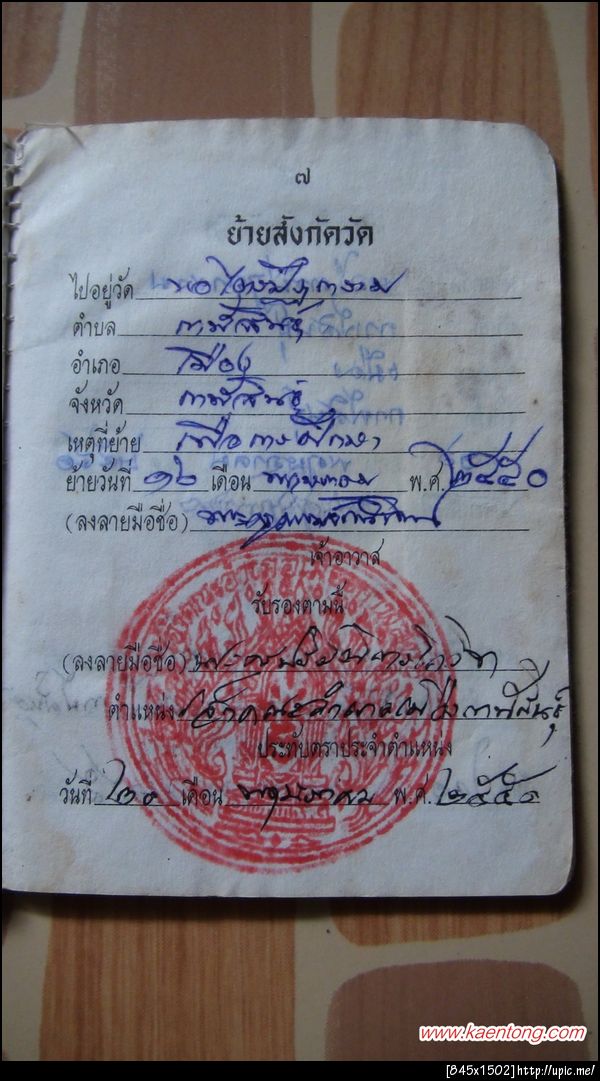 ๗
ย้ายสังกัดวัด
ไปอยู่วัด
ตำบล กาฬสินธุ์
อำเภอ เมือง
จังหวัด กาฬสินธุ์
เหตุที่ย้าย เพื่อการศึกษา
ย้ายวันที่ ๑๖ เดือน พฤษภาคม พ.ศ. ๒๕๕๐
(ลงลายมือชื่อ)
เจ้าอาวาส
รับรองตามนี้
(ลงลายมือชื่อ)
ตำแหน่ง เจ้าคณะอำเภอเมืองกาฬสินธุ์
ประทับตราประจำตำแหน่ง
วันที่ ๒๐ เดือน พฤษภาคม พ.ศ. ๒๕๕๑
www.kaentong.com
[845x1502]http://upic.me/